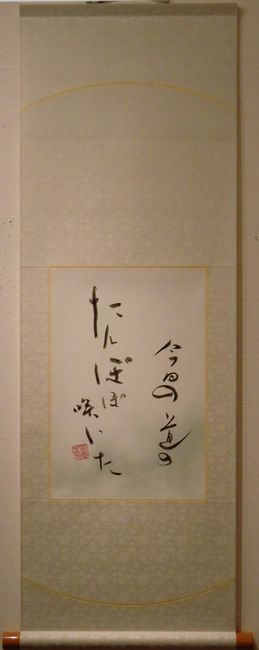 今日の道の
たんぽぽ
咲いた